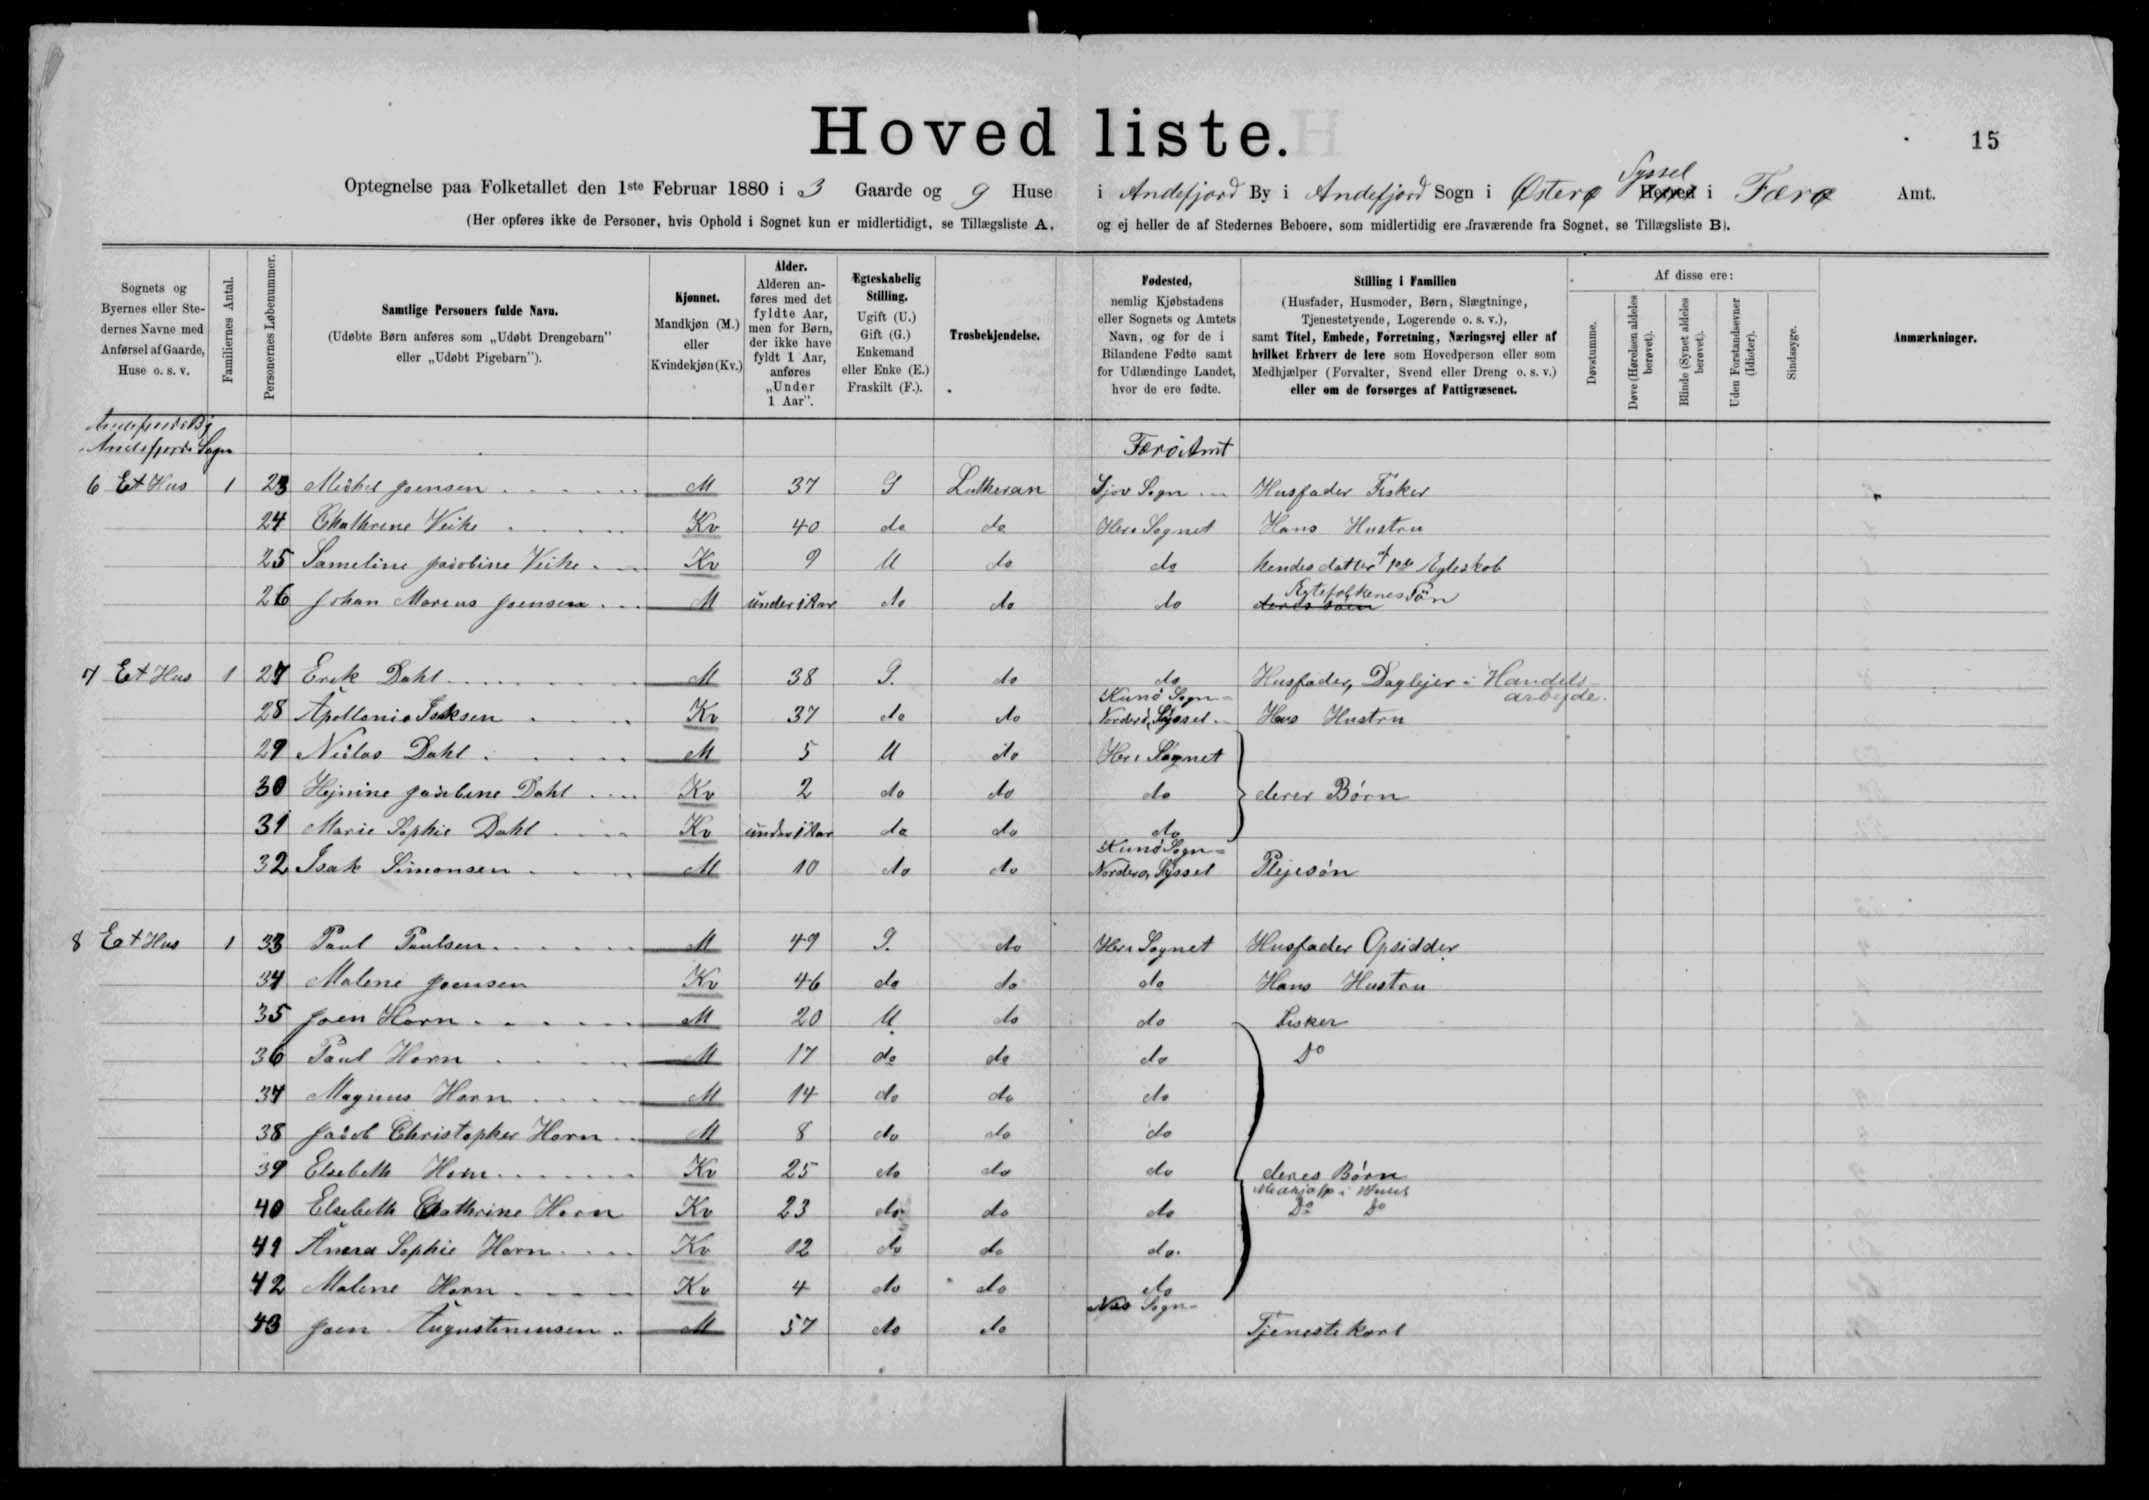 Hovedliste.
15
Optegnelse paa Folketallet den 1ste Februar 1880 i 3 Gaarde og 9 Huse i Andefjord By i Andefjord Sogn i Østerø Syssel Herred i Færø Amt.
(Her opføres ikke de Personer, hvis Ophold i Sognet kun er midlertidigt, se Tillægsliste A, og ej heller de af Stedernes Beboere, som midlertidig ere fraværende fra Sognet, se Tillægsliste B).
Sognets og Byernes eller Stedernes Navne med Anførsel af Gaarde, Huse o. s. v.
Familiernes Antal.
Personernes Løbenummer.
Samtlige Personers fulde Navn.
(Udøbte Børn anføres som „Udøbt Drengebarn" eller „Udøbt Pigebarn").
Kjønnet.
Mandkjøn (M.) eller Kvindekjøn (Kv.)
Alder.
Alderen anføres med det fyldte Aar, men for Børn, der ikke have fyldt 1 Aar, anføres „Under 1 Aar".
Ægteskabelig Stilling.
Ugift (U.) Gift (G.) Enkemand eller Enke (E.) Fraskilt (F.).
Trosbekjendelse.
Fødested,
nemlig Kjøbstadens eller Sognets og Amtets Navn, og for de i Bilandene Fødte samt for Udlændinge Landet, hvor de ere fødte.
Stilling i Familien
(Husfader, Husmoder, Børn, Slægtninge, Tjenestetyende, Logerende o. s. v.),
samt Titel, Embede, Forretning, Næringsvej eller af hvilket Erhverv de leve som Hovedperson eller som Medhjælper (Forvalter, Svend eller Dreng o. s. v.)
eller om de forsørges af Fattigvæsenet.
Af disse ere:
Døvstumme.
Døve (Hørelsen aldeles berøvet).
Blinde (Synet aldeles berøvet).
Uden Forstandsevner (Idioter).
Sindssyge.
Anmærkninger.
Andefjords By
Andefjords Sogn
Færø Amt
6 Et Hus 1 23 Michel Joensen M 37 G Lutheran Sjov Sogn Husfader Fisker
24 Chathrine Veihe Kv 40 do do Her i Sognet Hans Hustru
25 Sameline Jacobine Veihe Kv 9 U do do hendes datter
26 Johan Marius Joensen M under 1 Aar do do do deres søn Ægtefolkenes Sön
7 Et Hus 1 27 Erik Dahl M 38 G. do do Husfader, Daglejer i Handels-
arbejde.
28 Apollonia Isaksen Kv 37 do do Kunø Sogn Norderø Syssel Hans Hustru
29 Niclas Dahl M 5 U do Her i Sognet
30 Hejnine Jacobine Dahl Kv 2 do do do deres Børn
31 Marie Sophie Dahl Kv under 1 Aar do do do
32 Isak Simonsen M 10 do do Kunø Sogn Norderø Syssel Plejesøn
8 Et Hus 1 33 Paul Paulsen M 49 G. do Her i Sognet Husfader Opsidder
34 Malene Joensen Kv 46 do do do Hans Hustru
35 Joen Horn M 20 U do do Fisker
36 Paul Horn M 17 do do do Do
37 Magnus Horn M 14 do do do
38 Jacob Christopher Horn M 8 do do do
39 Elsebeth Horn Kv 25 do do do deres Børn
Medhjælp i Huset
40 Elsebeth Chathrine Horn Kv 23 do do do Do Do
41 Anna Sophie Horn Kv 12 do do do.
42 Malene Horn Kv 4 do do do
43 Joen Augustinussen M 57 do do Næs Sogn Tjenestekarl